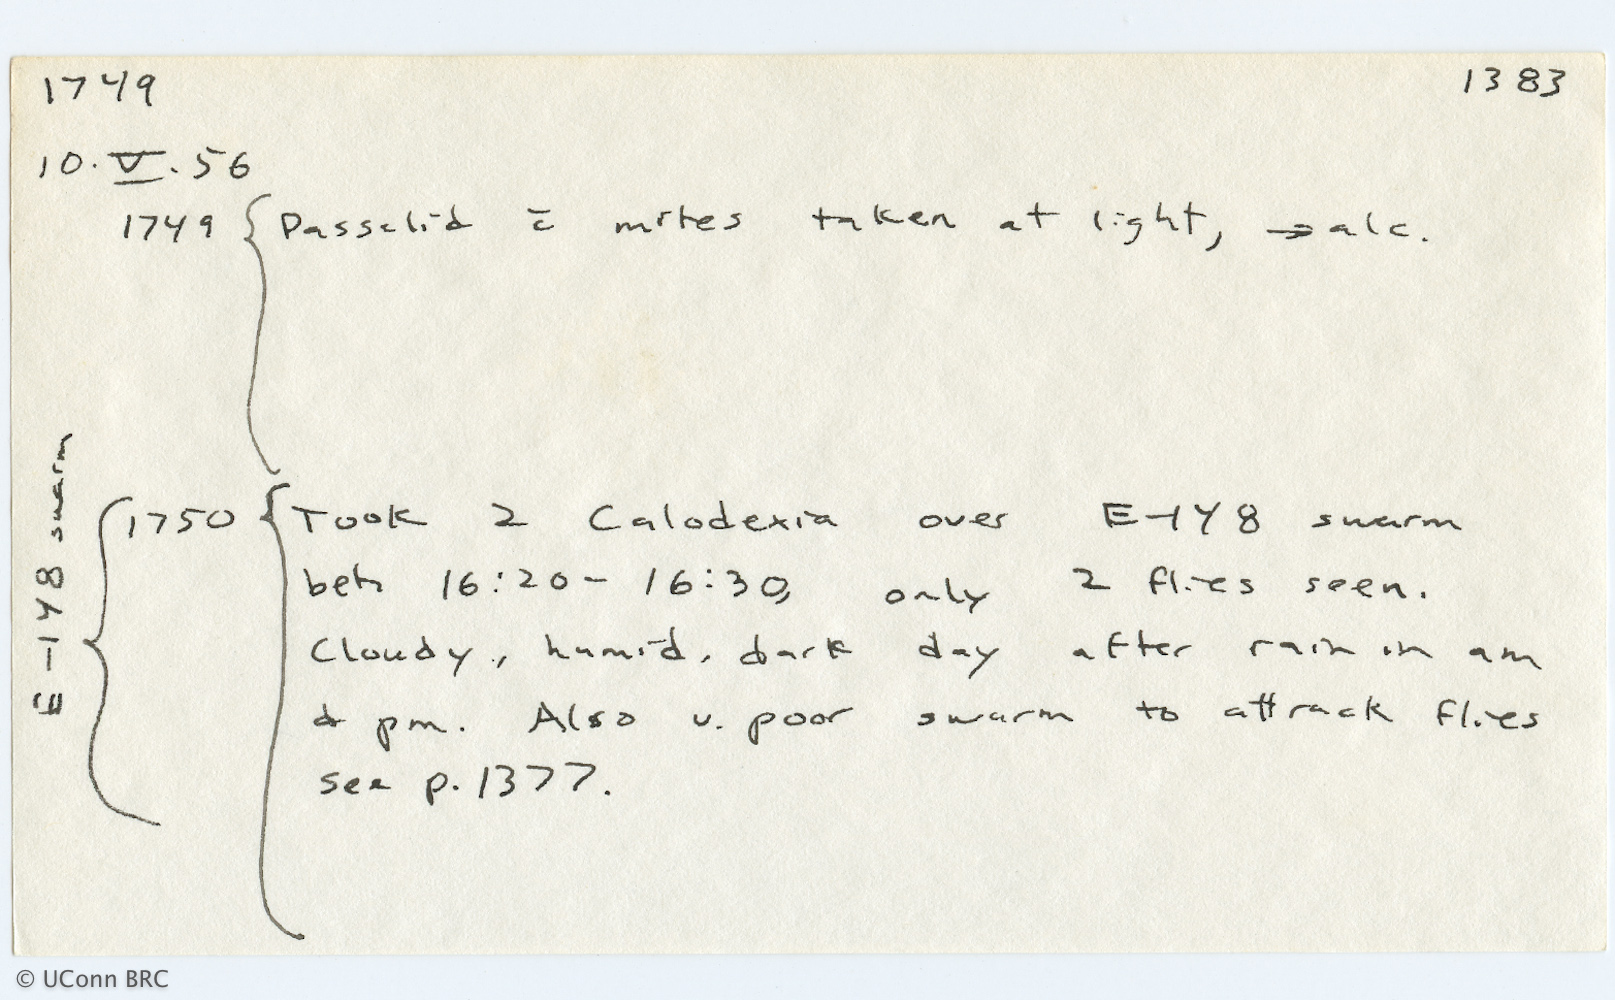 1749 1383
10.V.56
1749 { Passalid c̄ mites taken at light, → alc.
E-148 swarm
1750 { Took 2 Calodexia over E-148 swarm
betn 16:20- 16:30, only 2 flies seen.
Cloudy, humid, dark day after rain in am
& pm. Also v. poor swarm to attrack flies
see p.1377.
© UConn BRC